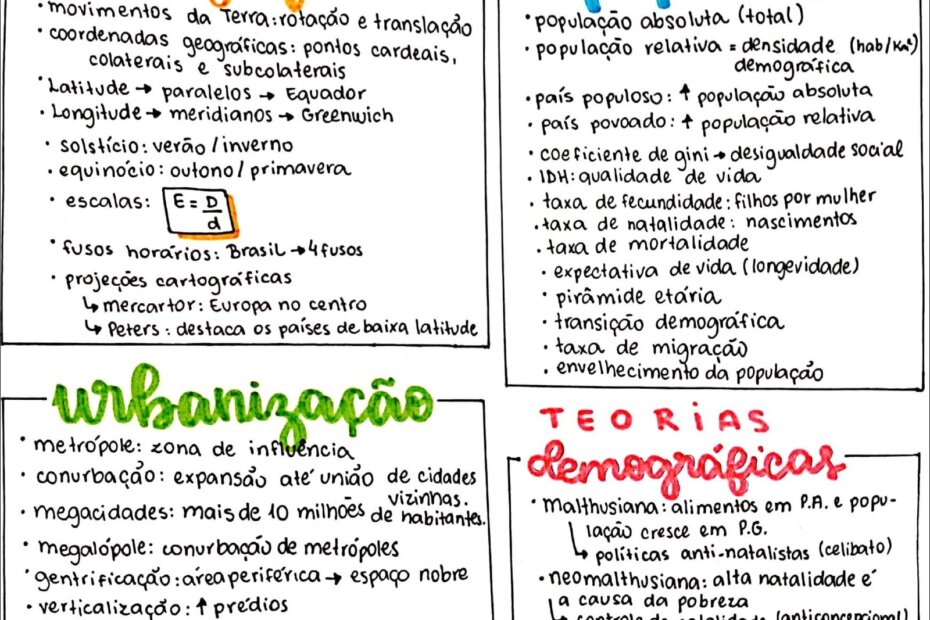 • movimentos da Terra: rotação e translação
• coordenadas geográficas: pontos cardeais,
colaterais e subcolaterais
• Latitude → paralelos → Equador
• Longitude → meridianos → Greenwich
• solstício: verão / inverno
• equinócio: outono / primavera
• escalas: E = D/d
• fusos horários: Brasil → 4 fusos
• projeções cartográficas
↳ mercartor: Europa no centro
↳ Peters: destaca os países de baixa latitude
• população absoluta (total)
• população relativa = densidade (hab/Km²)
demográfica
• país populoso: ↑ população absoluta
• país povoado: ↑ população relativa
• coeficiente de gini → desigualdade social
• IDH: qualidade de vida
• taxa de fecundidade: filhos por mulher
• taxa de natalidade: nascimentos
• taxa de mortalidade
• expectativa de vida (longevidade)
• pirâmide etária
• transição demográfica
• taxa de migração
• envelhecimento da população
urbanização
• metrópole: zona de influência
• conurbação: expansão até união de cidades
vizinhas.
• megacidades: mais de 10 milhões de habitantes.
• megalópole: conurbação de metrópoles
• gentrificação: área periférica → espaço nobre
• verticalização: ↑ prédios
TEORIAS
demográficas
• malthusiana: alimentos em P.A. e popu-
lação cresce em P.G.
↳ políticas anti-natalistas (celibato)
• neomalthusiana: alta natalidade é
a causa da pobreza
↳ controle de natalidade (anticoncepcional)